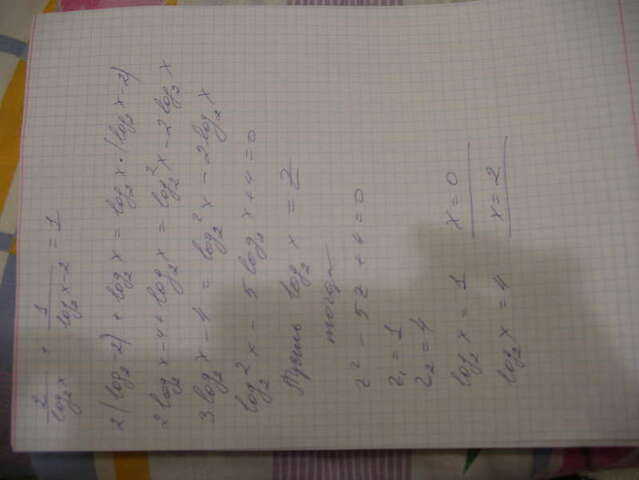 2/log₂x + 1/(log₂x-2) = 1
2(log₂-2) + log₂x = log₂x·(log₂x-2)
2log₂x-4+log₂x = log₂²x-2log₂x
3log₂x-4 = log₂²x-2log₂x
log₂²x-5log₂x+4=0
Пусть log₂x = z
тогда
z²-5z+4=0
z₁=1
z₂=4
log₂x=1 x=0
log₂x=4 x=2